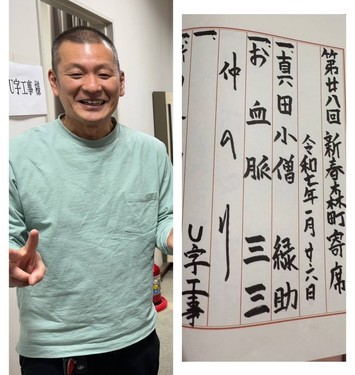 U字工事 様
第廿八回 新春森町寄席
令和七年一月廿六日
一、真田小僧 緑助
一、お血脈 三三
一、仲の川
U字工事